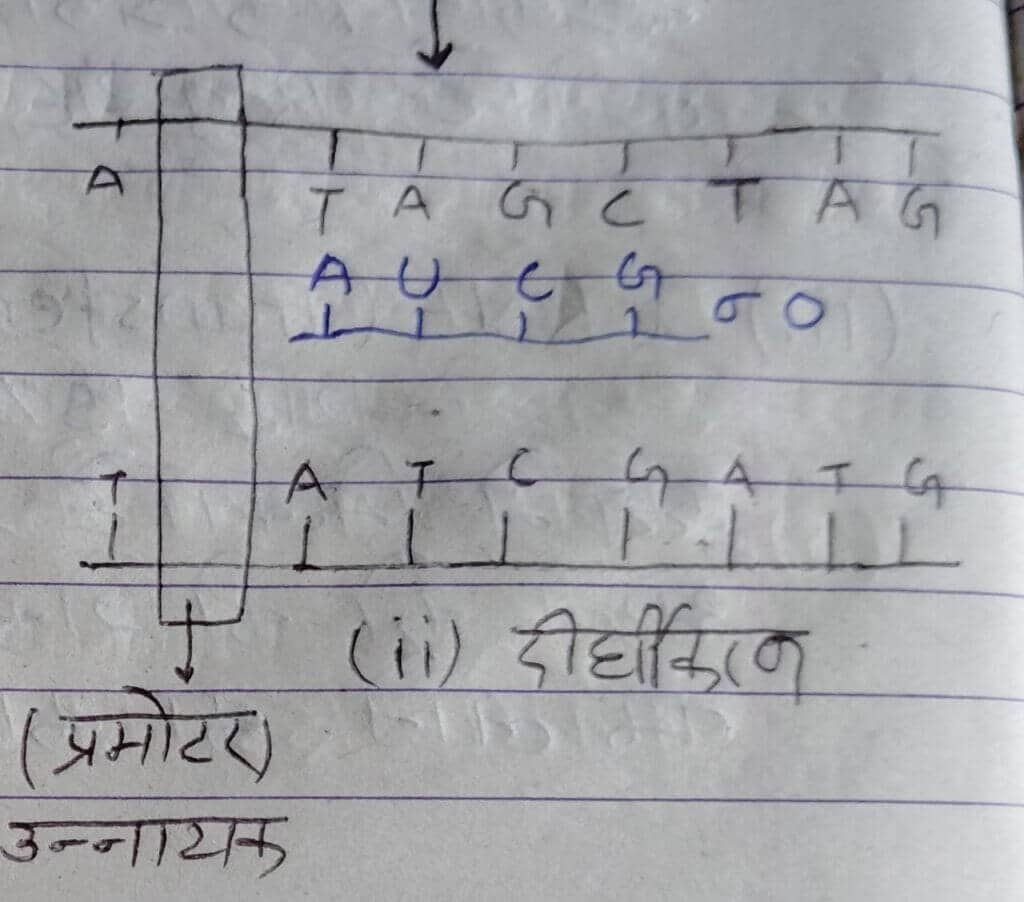 A T A G C T A G
A U C G σ O
T A T C G A T G
(ii) दीर्घीकरण
(प्रमोटर)
उन्नायक